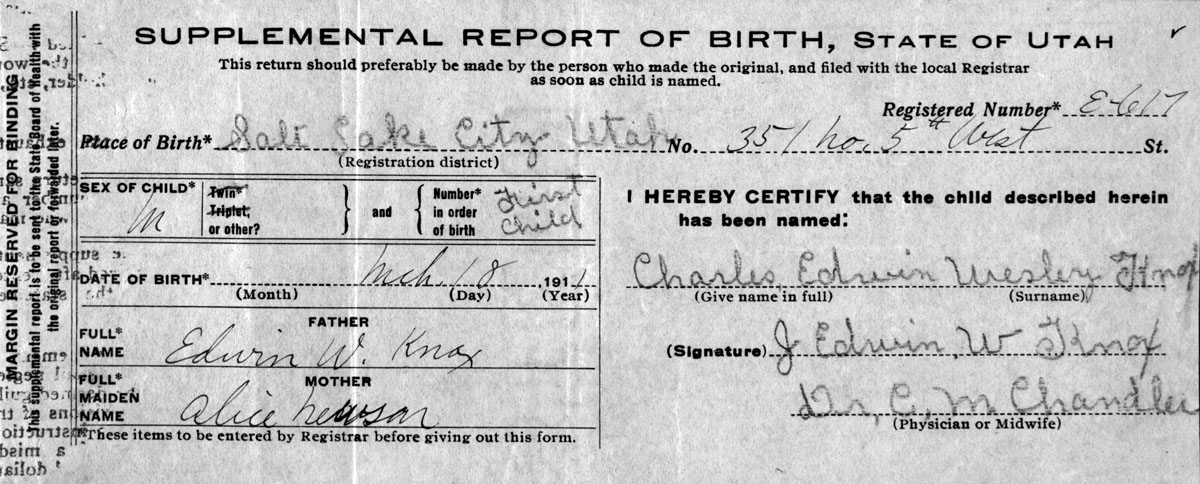 SUPPLEMENTAL REPORT OF BIRTH, STATE OF UTAH
This return should preferably be made by the person who made the original, and filed with the local Registrar
as soon as child is named.
Registered Number* E-617
Place of Birth* Salt Lake City Utah No. 351 no. 5th West St.
(Registration district)
SEX OF CHILD* M
Twin*
Triplet,
or other?
and
Number*
in order
of birth
First
Child
DATE OF BIRTH* Mch. 18, 1911
(Month) (Day) (Year)
FATHER
FULL*
NAME
Edwin W. Knox
MOTHER
FULL*
MAIDEN
NAME
Alice
*These items to be entered by Registrar before giving out this form.
I HEREBY CERTIFY that the child described herein
has been named:
Charles, Edwin Wesley Knox
(Give name in full) (Surname)
(Signature) J Edwin, W Knox
Dr, C, M Chandler
(Physician or Midwife)
MARGIN RESERVED FOR BINDING
This supplemental report is to be sent to the State Board of Health with
the original report or forwarded later.